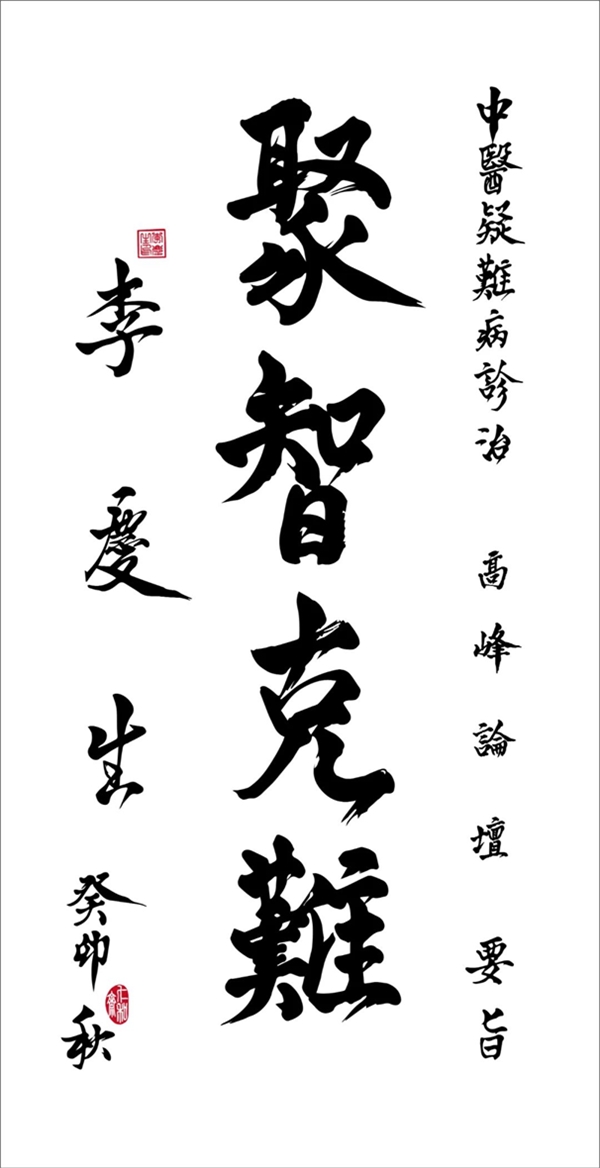 中醫疑難病診治 高峰論壇要旨
聚智克難
李慶生 癸卯秋